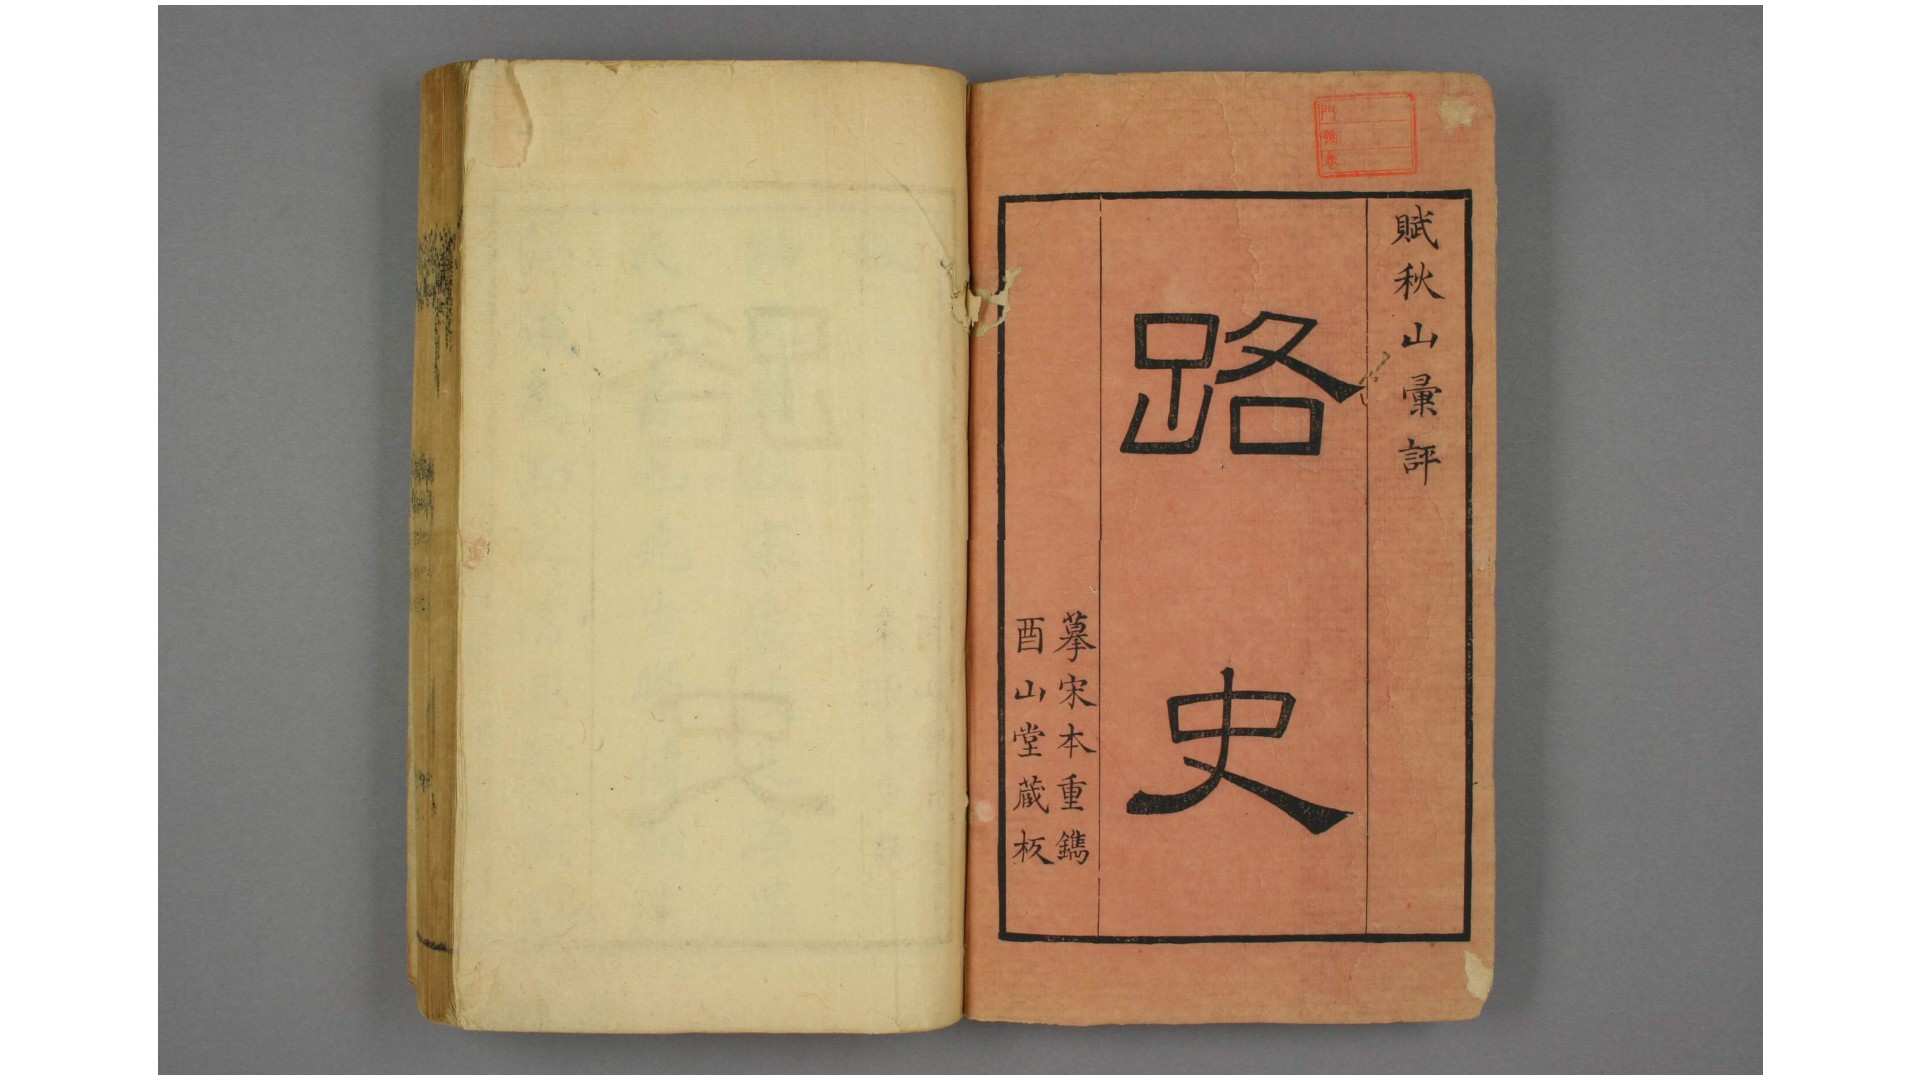 賦秋山彙評
路史
摹宋本重鐫
酉山堂蔵板
門
號
卷